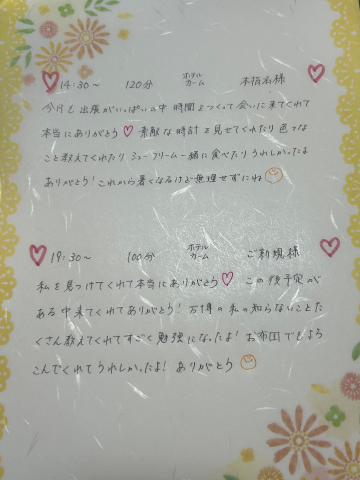 ♡ 14:30～ 120分 ホテルカーム 本指名様 ♡
今月も出張がいっぱいの中 時間をつくって会いに来てくれて
本当にありがとう♡ 素敵な時計を見せてくれたり色々な
こと教えてくれたり シュークリーム一緒に食べたりうれしかったよ
ありがとう! これから暑くなるけど無理せずにね
♡ 19:30～ 100分 ホテルカーム ご新規様 ♡
私を見つけてくれて本当にありがとう♡ この後予定が
ある中来てくれてありがとう! 万博の私の知らないことた
くさん教えてくれてすごく勉強になったよ! お布団でもよろ
こんでくれてうれしかったよ! ありがとう